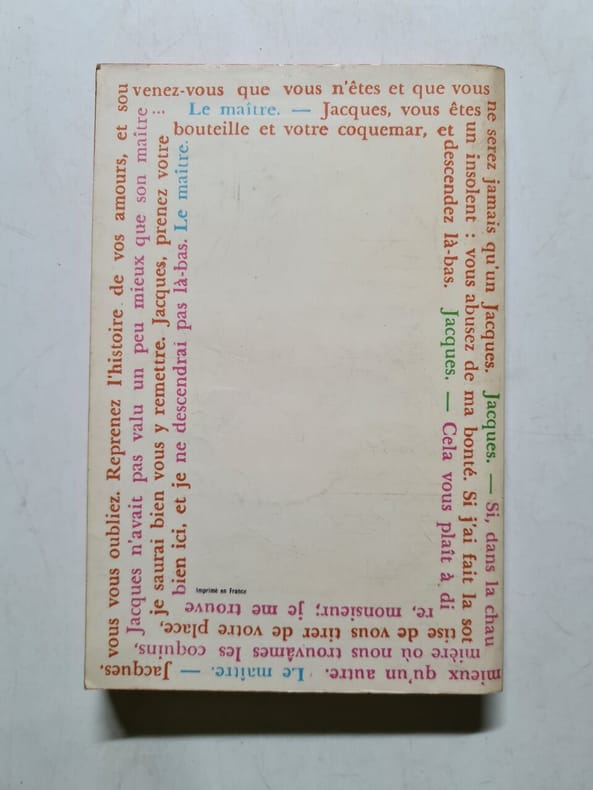 mieux qu'un autre. Le maître. — Jacques,
vous vous oubliez. Reprenez l'histoire de vos amours, et sou
venez-vous que vous n'êtes et que vous
ne serez jamais qu'un Jacques. Jacques. — Si, dans la chau
mière où nous trouvâmes les coquins,
Jacques n'avait pas valu un peu mieux que son maître ...
Le maître. — Jacques, vous êtes
un insolent : vous abusez de ma bonté. Si j'ai fait la sot
tise de vous tirer de votre place,
je saurai bien vous y remettre. Jacques, prenez votre
bouteille et votre coquemar, et
descendez là-bas. Jacques. — Cela vous plaît à di
re, monsieur; je me trouve
bien ici, et je ne descendrai pas là-bas. Le maître.
Imprimé en France